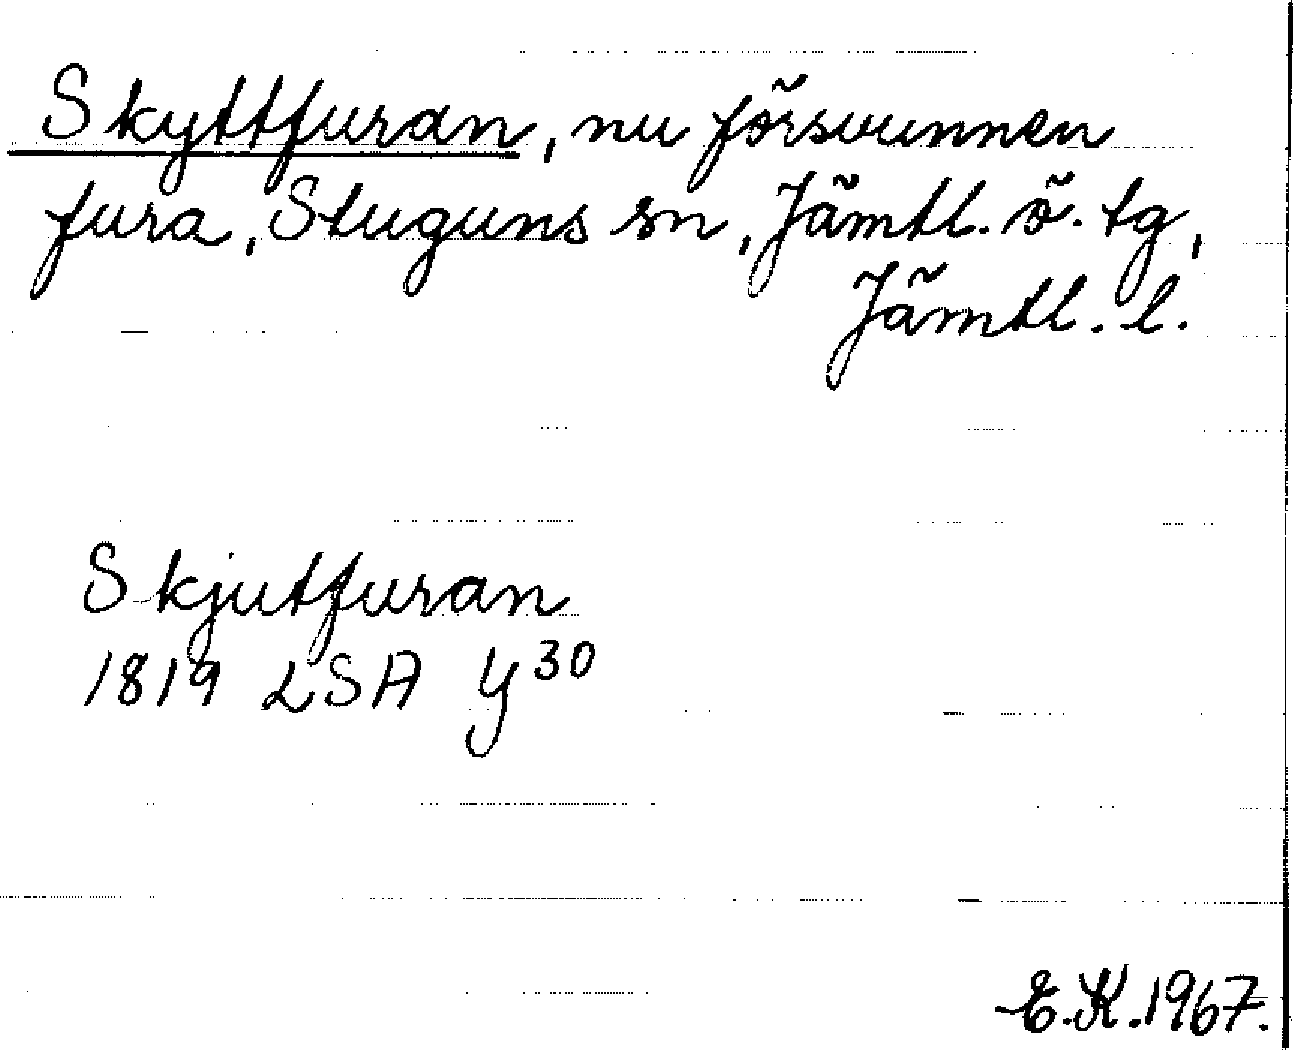 Skyttfuran, nu försvunnen
fura, Stuguns sn, Jämtl. ö. tg,
Jämtl. l.
Skjutfuran
1819 LSA Y³⁰
E.K. 1967.